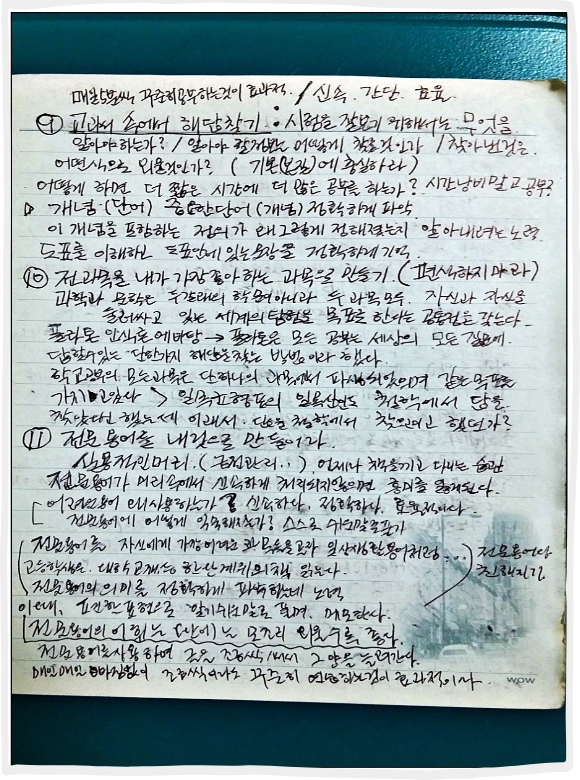 매일 5분씩 꾸준히 공부하는것이 효과적. / 신속. 간단. 효율.
⑨ 교과서 속에서 해답찾기 : 시험을 잘보기 위해서는 무엇을
알아야하는가? / 알아야 할것을 어떻게 찾을것인가 / 찾아낸것은
어떤식으로 외울것인가? ( 기본(본질)에 충실하라 )
어떻게 하면 더 짧은 시간에 더 많은 공부를 하는가? 시간낭비말고 공부?
개념 (단어) 중요한단어 (개념) 정확하게 파악
이 개념을 포함하는 정의가 왜 그렇게 정해졌는지 알아내려는 노력.
도표를 이해하고 도표안에 있는 정확하게 기억.
⑩ 전과목을 내가 가장 좋아하는 과목으로 만들기. (편식하지 마라)
과학과 두갈래의 학문이 아니라 두 과목 모두. 자신과 자신을
둘러싸고 있는 세계의 탐험을 목표를 한다는 공통점을 갖는다.
플라톤 → 플라톤은 모든 공부는 세상의 모든 질문에.
답할수있는 단한가지 해답을 찾는 방법이라 했다.
학교공부의 모든과목은 단하나의 과목에서 파생되었으며 같은 목표를
가지고 있다 > 철학에서 답을.
찾았다고 했는데 이래서. 철학에서 찾으라고 했던가?
⑪ 전문용어를 내것으로 만들어라.
실용적인머리. ( ‥) 언제나 책을끼고 다니는 습관
전문용어가 머리속에서 신속하게 처리되지않으면 흥미를 잃게된다.
어려운용어 왜 사용하는가? 신속하다, 정확하다,
전문용어에 어떻게 익숙해질까? 스스로 쉬운말로풀기
전문용어를 자신에게 가장 어려운 과목을 일상생활용어처럼...
전문용어랑
친해지기
고등학생은. 대학교재또는 한단계위의책 읽는다.
전문용어의 의미를 정확하게 파악하는데 노력
이때, 표현을 알기쉬운말로 풀며, 메모한다.
전문용어의 어휘는 (단어)는 외울수록 좋다.
전문용어를사용하여 글을 조금씩 써서 그 양을 늘려간다.
매일매일 조금씩이라도 꾸준히 연습하는것이 효과적이다.
wow